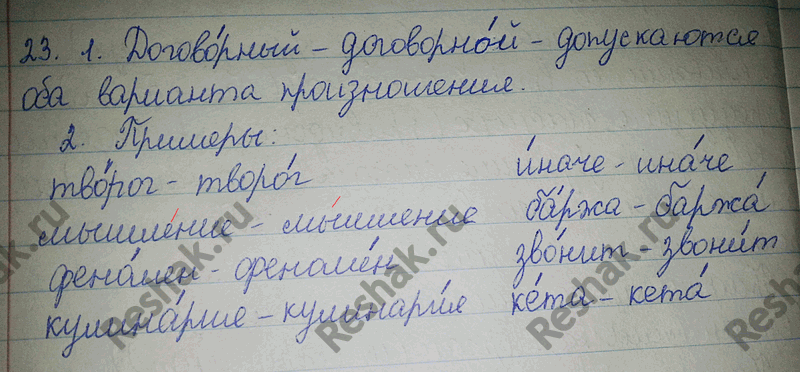 23. 1. Догово́рный – договорно́й – допускаются
оба варианта произношения.
2. Примеры:
тво́рог – творо́г
мышле́ние – мы́шление
фено́мен – феноме́н
кулина́рия – кулинари́я
и́наче – ина́че
ба́ржа – баржа́
зво́нит – звони́т
ке́та – кета́
Reshak.ru
Reshak.ru
Reshak.ru
Reshak.ru
Reshak.ru